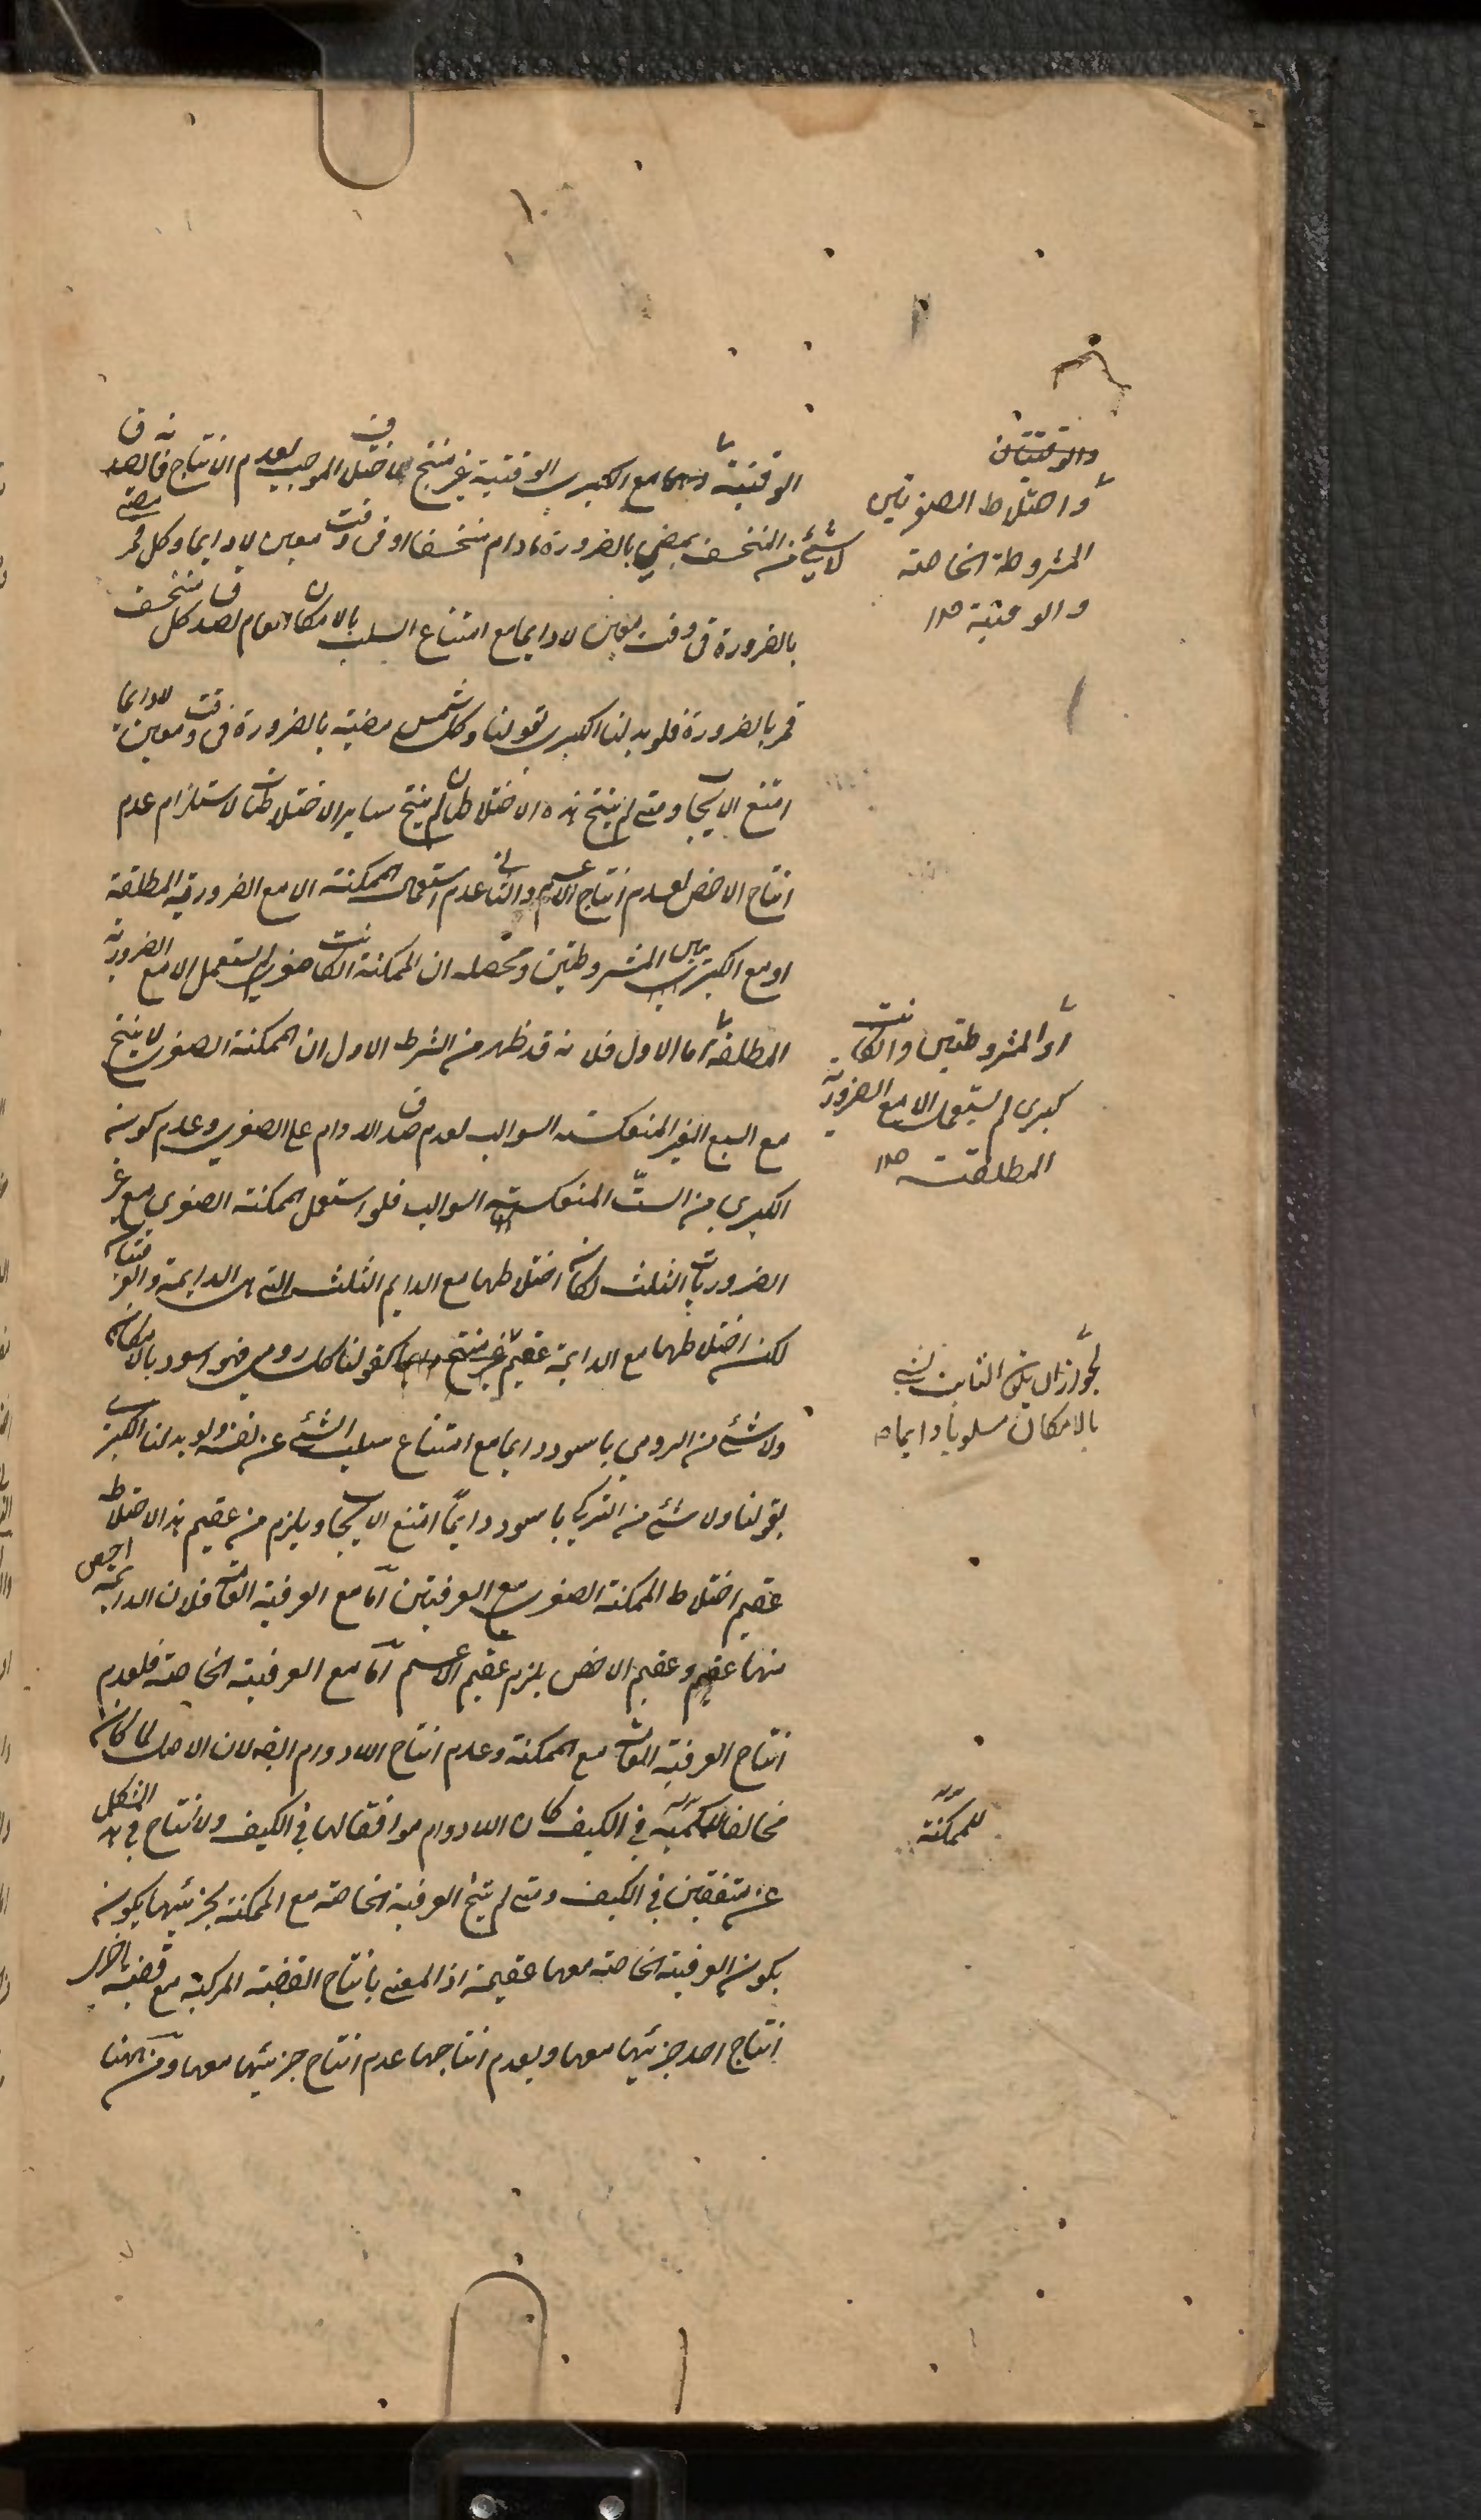 الوقتية مع الكبرى الوقتية غير منتج للاختلاف الموجب لعدم الانتاج فانه يصدق
لا شيء من المنخسف بمضيء بالضرورة ما دام منخسفا او في وقت معين لا دايما وكل قمر مضيء
بالضرورة في وقت معين لا دايما مع امتناع السلب بالامكان العام لصدق كل منخسف
قمر بالضرورة فلو بدلنا الكبرى بقولنا وكل شمس مضيئة بالضرورة في وقت معين لا دايما
امتنع الايجاب ومتى لم ينتج هذه الاختلاطان لم ينتج ساير الاختلاطات لاستلزام عدم
انتاج الاخص لعدم انتاج الاعم والثاني عدم استعمال الممكنة الا مع الضرورية المطلقة
او مع الكبريين المشروطتين ومحصله ان الممكنة ان كانت صغرى لم تستعمل الا مع الضرورية
المطلقة اما الاول فلانه قد ظهر من الشرط الاول ان الممكنة الصغرى لا ينتج
مع السبع الغير المنعكسة السوالب لعدم صدق الدوام على الصغرى وعدم كون
الكبرى من الست المنعكسة السوالب فلو استعمل الممكنة الصغرى مع غير
الضروريات الثلث لكان اختلاطها مع الدايم الثلث التي هي الدايمة والعرفيتان
لكن اختلاطها مع الدايمة عقيم غير منتج كقولنا كل رومي فهو اسود بالامكان
ولا شيء من الرومي باسود دايما مع امتناع سلب الشيء عن نفسه ولو بدلنا الكبرى
بقولنا ولا شيء من التركي باسود دايما امتنع الايجاب ويلزم من عقيم هذا الاختلاط
عقيم اختلاط الممكنة الصغرى مع العرفيتين اما مع العرفية العامة فلان الدايمة اخص
منها عقيم وعقيم الاخص يلزم عقيم الاعم اما مع العرفية الخاصة فلعدم
انتاج العرفية العامة مع الممكنة وعدم انتاج اللادوام ايضا لان الاصل لما كان
مخالفا للممكنة في الكيف كان اللادوام موافقا لها في الكيف ولا انتاج في هذا الشكل
عن متفقين في الكيف ومتى لم ينتج العرفية الخاصة مع الممكنة بجزئيها يكون
يكون العرفية الخاصة معها عقيمة اذ المعنى بانتاج القضية المركبة مع قضية اخرى
انتاج احد جزئيها معها وبعدم انتاجها عدم انتاج جزئيها معها ومن ههنا
والوقتيتان
واختلاط الصغريين
المشروطة الخاصة
والوقتية صح
او المشروطتين وان كانت
كبرى لم تستعمل الا مع الضرورية
المطلقة صح
لجواز ان يكون الثابت لشيء
بالامكان مسلوبا دايما
للممكنة